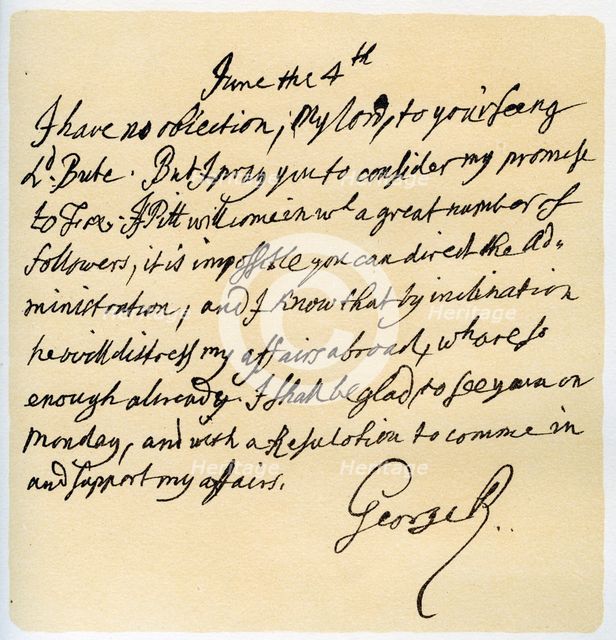 June the 4th
I have no obiection, My lord, to your seeng
Ld. Bute. But I pray you to consider my promise
to Fox. If Pitt will come in wt. a great number of
followers, it is impossible you can direct the Ad=
ministration, and I know that by inclination
he will distress my affairs abroad, wh are so
enough already. I shall be glad to see you on
Monday, and with a Resulotion to comme in
and support my affairs.
George R.